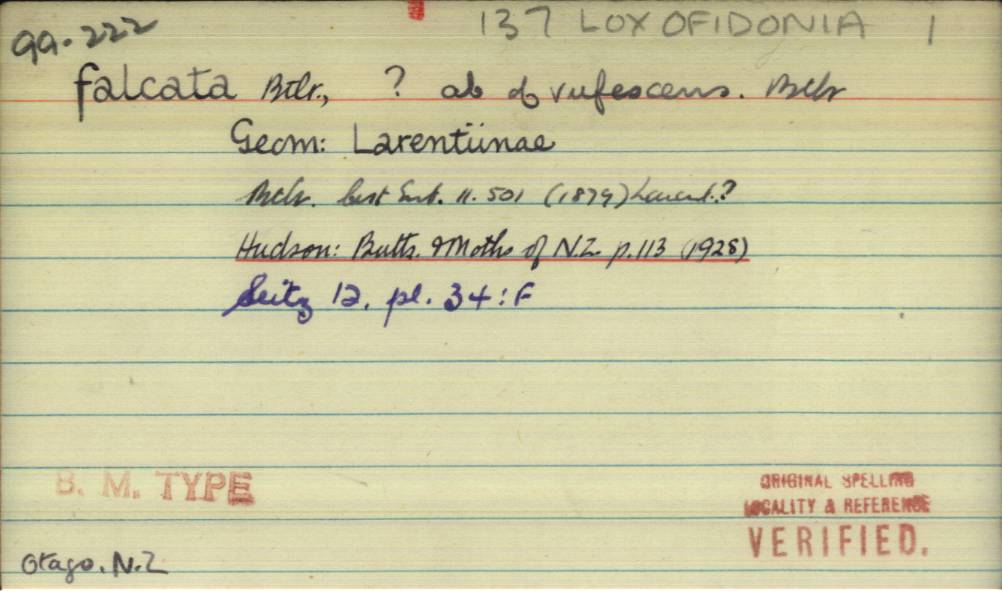 99.222
137 LOXOFIDONIA 1
falcata Btlr., ? ab of rufescens. Btlr
Geom: Larentiinae
Btlr. Cist Ent. 11. 501 (1879) Larent.?
Hudson: Butts. & Moths of N.Z. p.113 (1928)
Seitz 12. pl. 34:F
B. M. TYPE
ORIGINAL SPELLING
LOCALITY & REFERENCE
VERIFIED.
Otago. N.Z